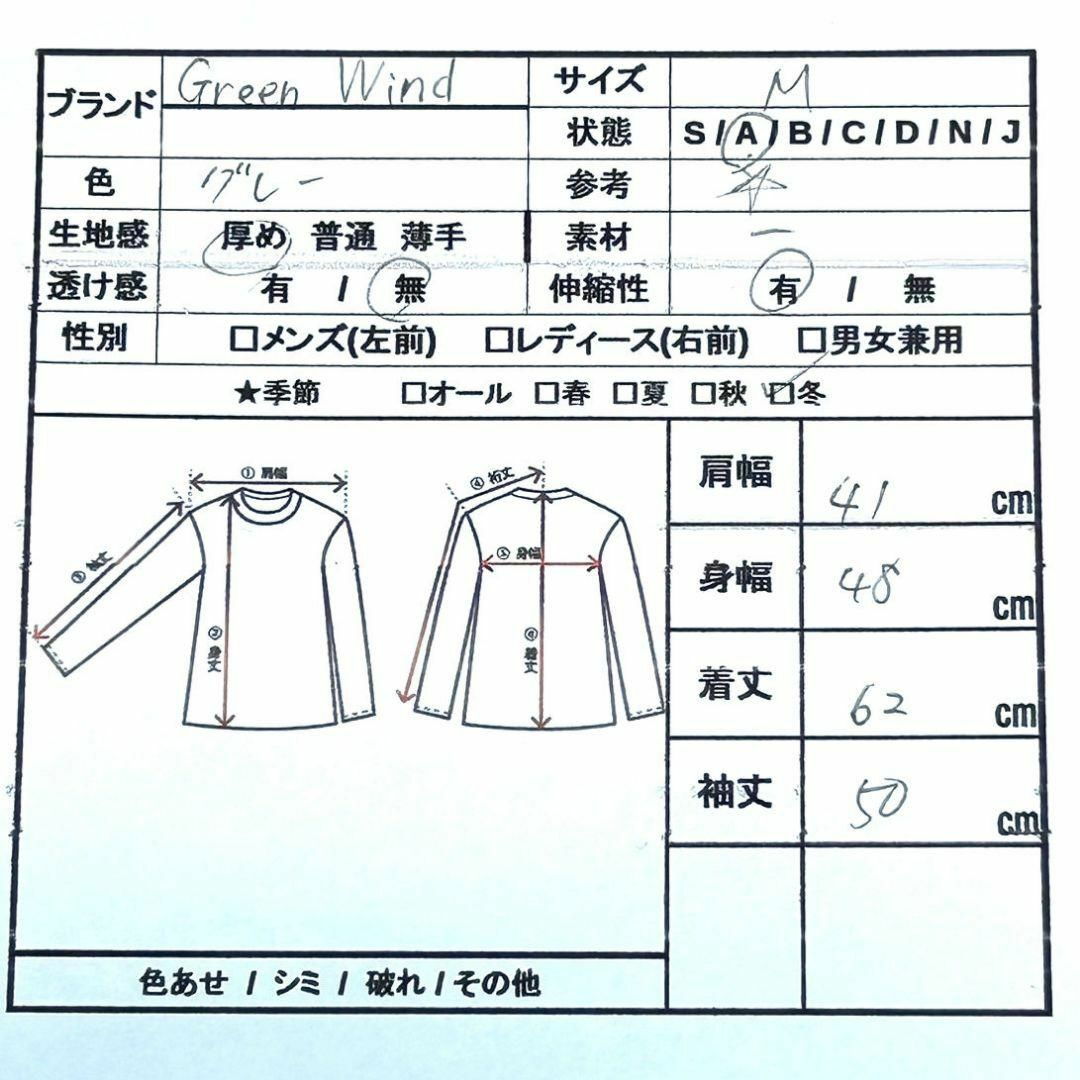 ブランド Green Wind サイズ M
状態 S / A / B / C / D / N / J
色 グレー 参考
生地感 厚め 普通 薄手 素材 ー
透け感 有 / 無 伸縮性 有 / 無
性別 □メンズ(左前) □レディース(右前) □男女兼用
★季節 □オール □春 □夏 □秋 □冬
① 肩幅
③ 袖丈
② 身丈
④ 裄丈
⑤ 身幅
着丈
肩幅 41 cm
身幅 48 cm
着丈 62 cm
袖丈 50 cm
色あせ / シミ / 破れ / その他